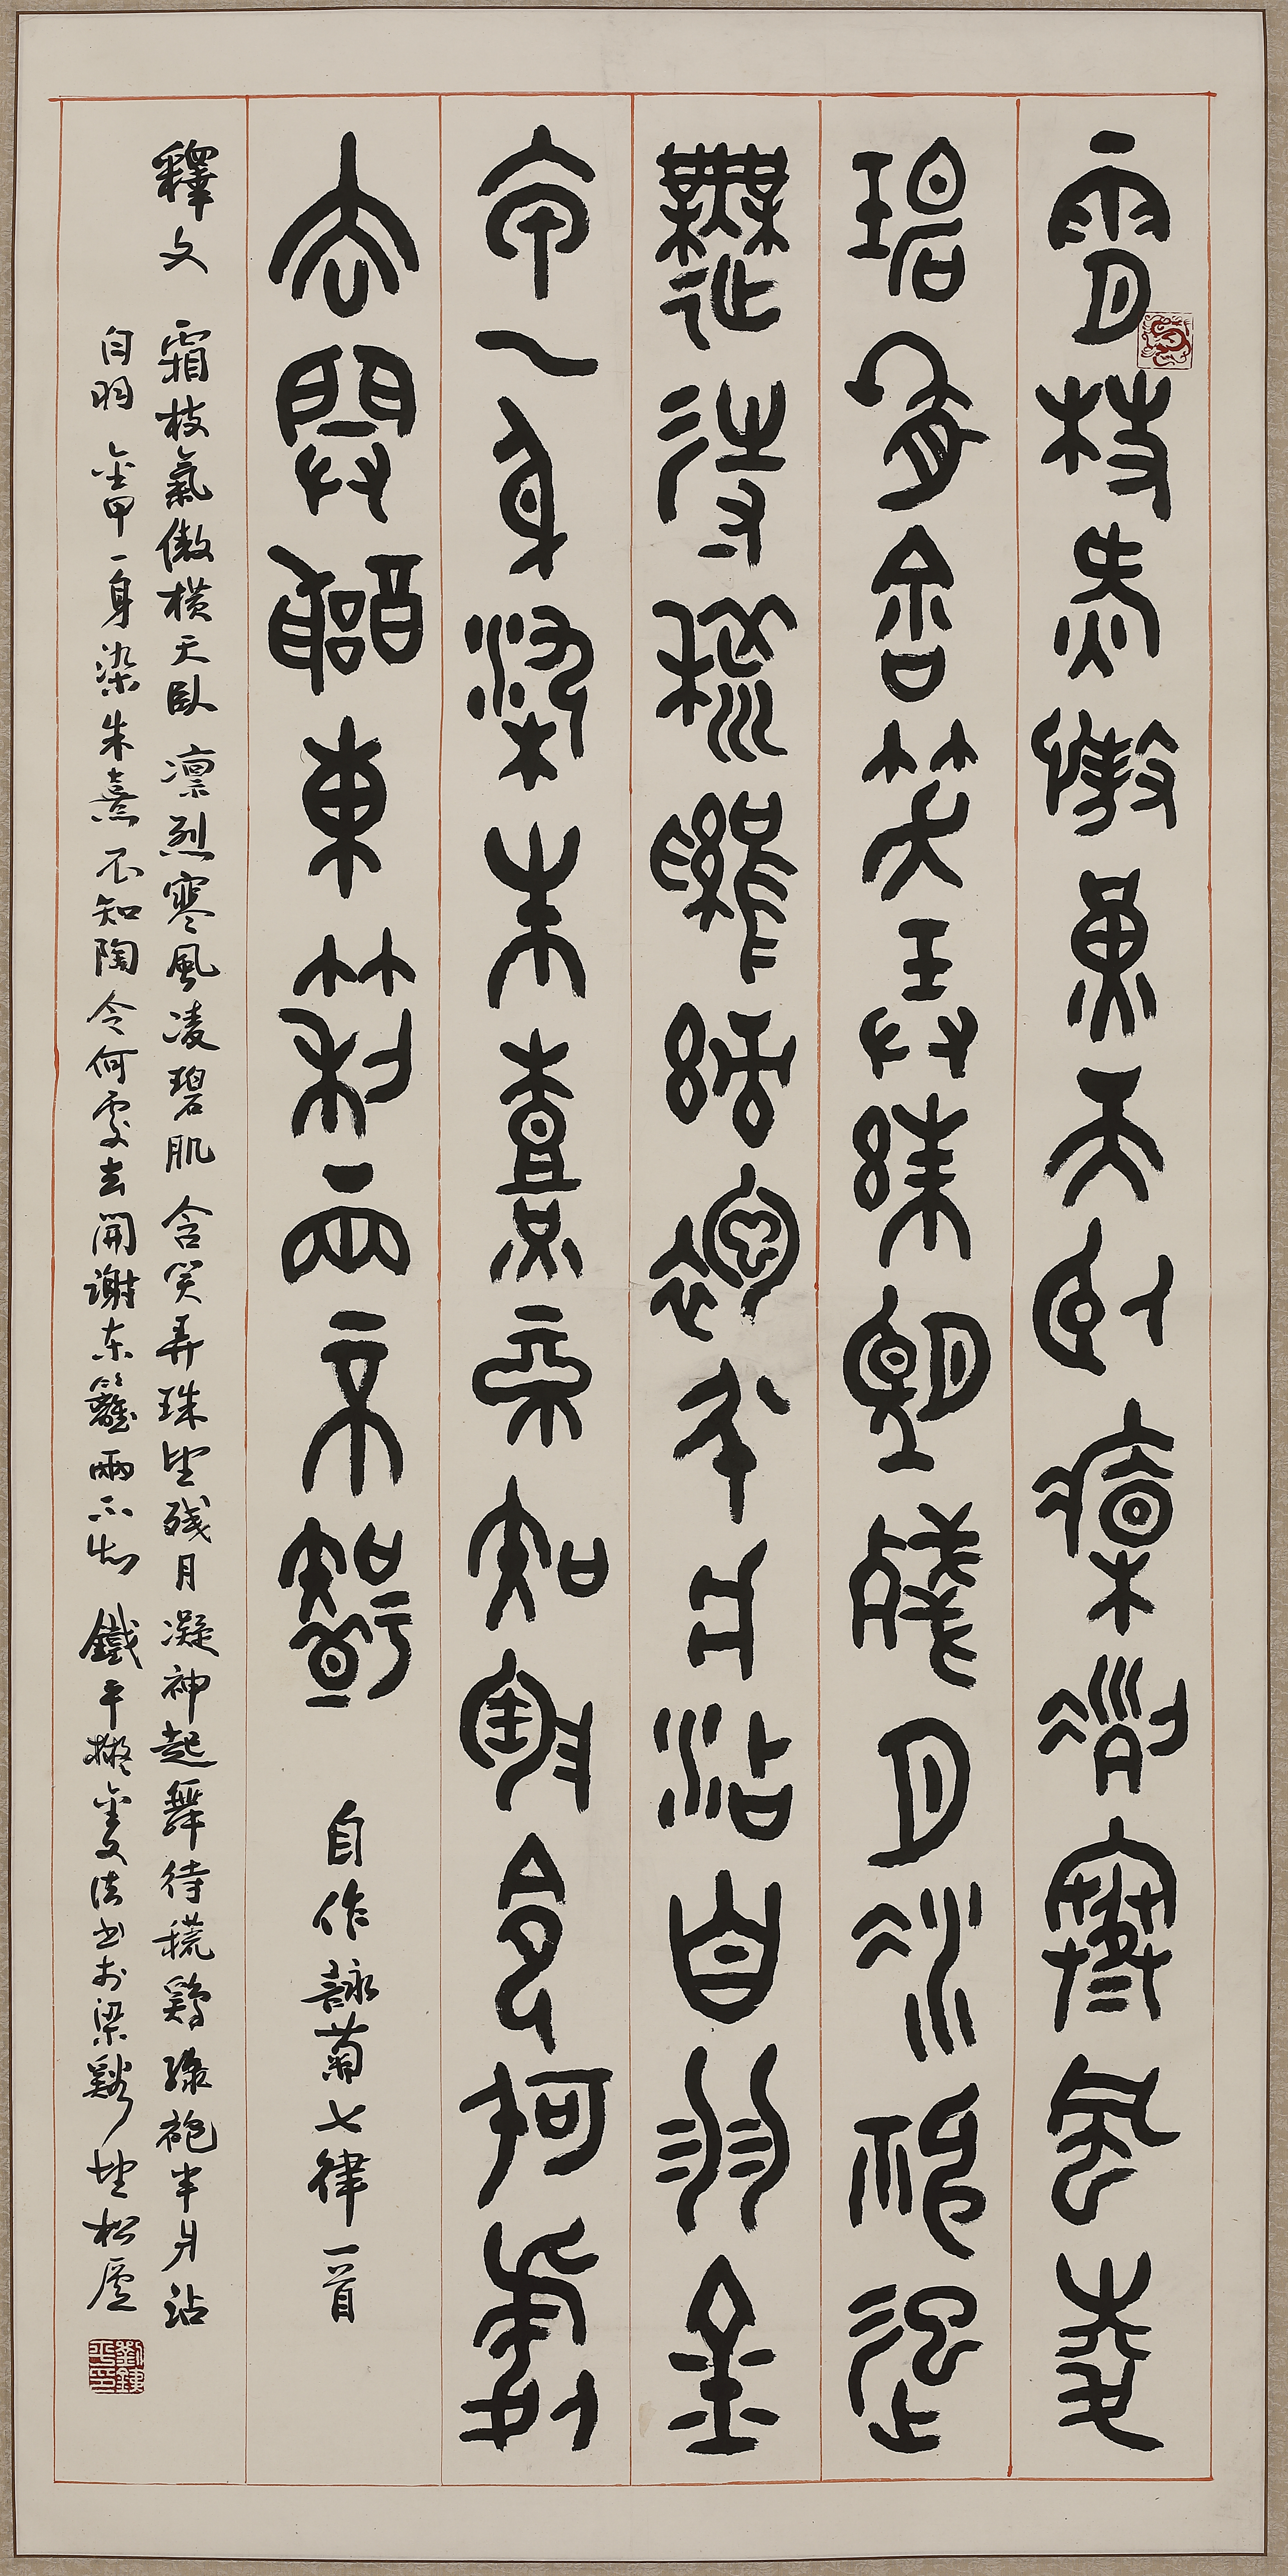 霜枝氣傲橫天臥凜冽寒風凌
碧肌含笑弄珠望殘月凝神起
舞待鷄綠袍半爿沾自羽金
甲一身染朱熹不知陶令何處
去開謝東籬兩不知 自作詠菊七律一首
釋文 霜枝氣傲橫天臥 凜烈寒風凌碧肌 含笑弄珠望殘月 凝神起舞待鷄 綠袍半爿沾
自羽 金甲一身染朱熹 不知陶令何處去 開謝東籬兩不知 鐵平擬金文法書於梁谿松廬
劉鐵平印